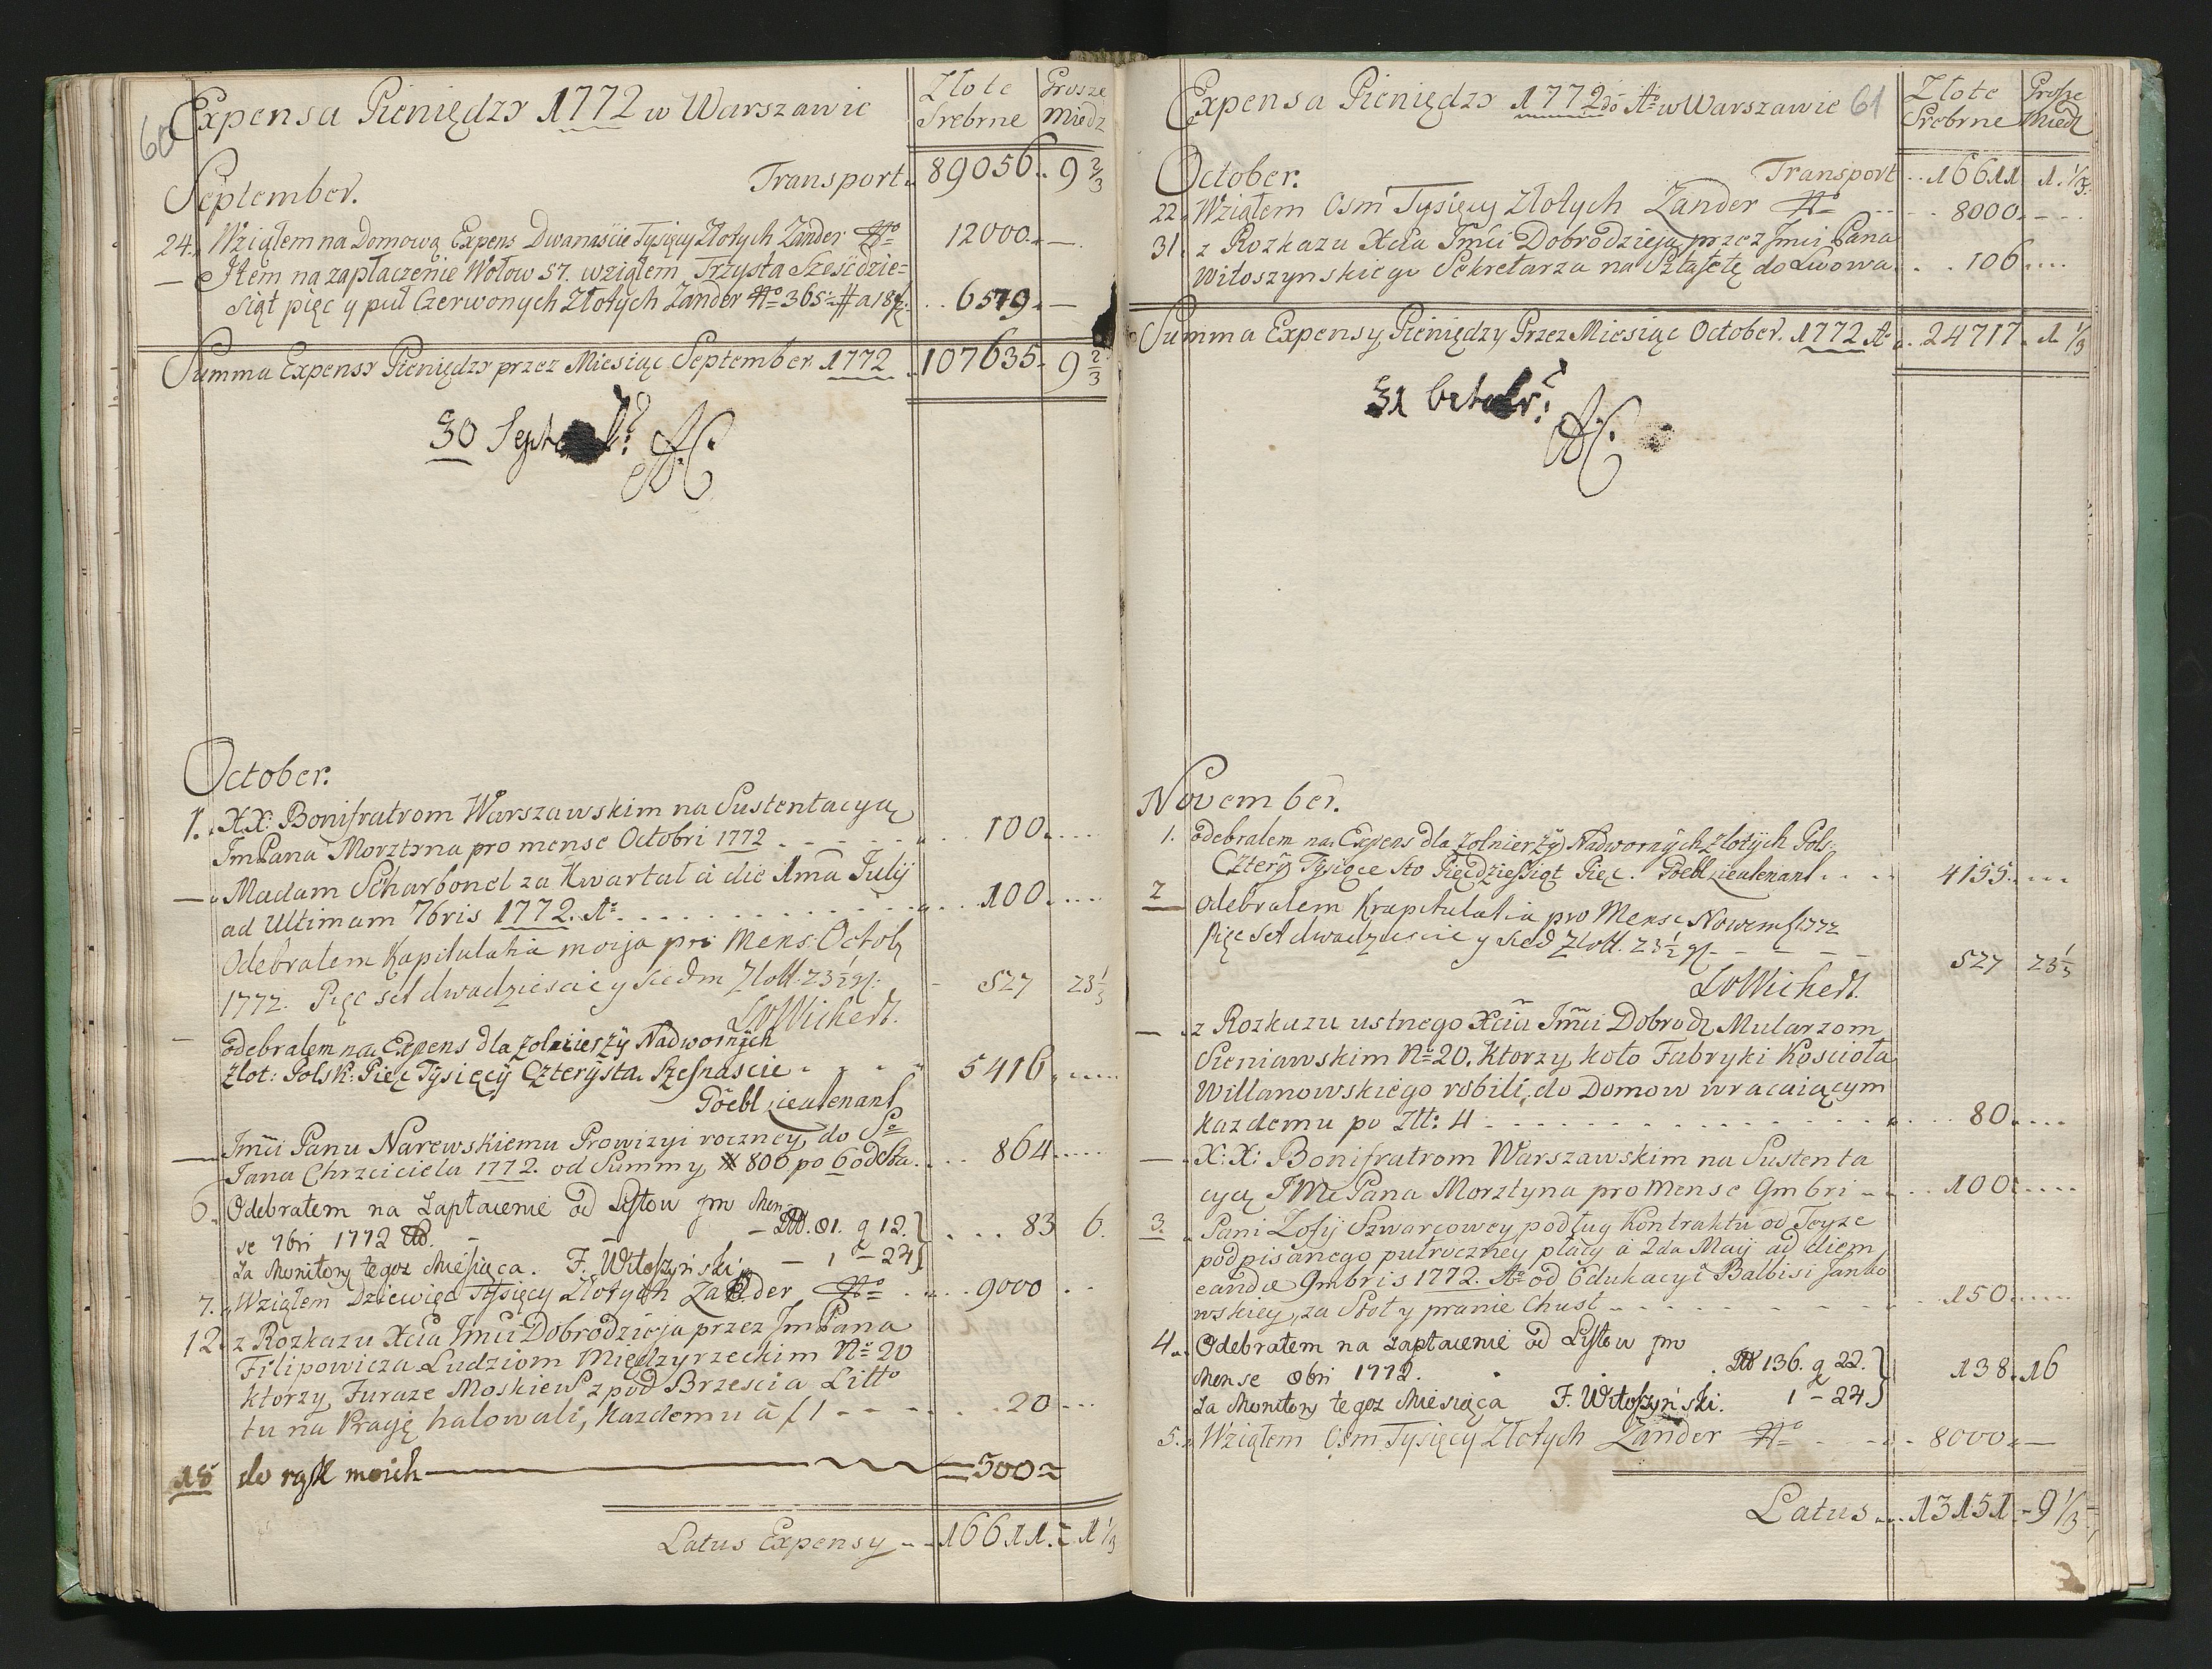 60
Expensa Pieniędzy 1772 w Warszawie
Złote Srebrne
Grosze Miedz
September.
Transport 89056 .. 9 2/3
24. Wziąłem na Domową Expens Dwanaście Tysięcy Złotych Zander 12000 . —
— Item na zapłaczenie Wołow 57. wziąłem Trzysta Sześćdzie=
siąt pięc y puł Czerwonych Złotych Zander No 365 ½ # a 18 .. 6579 . —
Summa Expensy Pieniędzy przez Miesiąc September 1772 . 107635 . 9 2/3
30
October.
1. XX: Bonifratrom Warszawskim na Sustentacyą
JmPana Morztyna pro mense Octobri 1772 - - - - - 100 ....
— Madam Scharbonel za Kwartał a die 1ma Julij
ad Ultimam 7bris 1772. Ao . . . . . . . 100 ....
Odebrałem Kapitulatia moija pro Mens: Octob
1772. Pięc set dwadziescie y siedm Zlott. 23½ gl: - 527 23 1/3
LvWichert.
— odebralem na Expens dla Zolnierzÿ Nadwornÿch
Zlot: Polsk: Pięc Tÿsięcÿ Czterÿsta Szesnascie - - - - 5416 .....
Göebl Lieutenant
— Jmći Panu Narewskiemu Prowizyi roczney, do S
Jana Chrzciciela 1772. od Summy # 800 po 6 od Sta. . . 864 ....
6. Odebrałem na zapłacenie od Listow pro Men
se 7bri 1772 - - 81. g 12. } .... 83 6.
za Monitory tegoz Miesiąca. F. Witoszyński - 1 - 24 }
7. Wziąłem Dziewięc Tysięcy Złotych Zander Ao - . . 9000 . .
12. z Rozkazu Xcia Jmći Dobrodzieja przez JmPana
Filipowicza Ludziom Międzyrzeckim No 20
ktorzy Furaze Moskiew z pod Brzescia Litto
tu na Pragę halowali, Kazdemu a f 1 - - - - . . 20 ...
15 do rąk moich — 500
Latus Expensy - - 16611. - 1 1/3
Expensa Pieniędzy 1772do Ao w Warszawie 61
Złote Srebrne
Grosze Miedz
October.
Transport .. 16611 1. 1/3
22. Wziąłem Osm Tysięcy Złotych Zander Ao .. 8000. - . .
31. z Rozkazu Xcia Jmći Dobrodzieja przez Jmći Pana
Witoszynskiego Sekretarza na Sztafetę do Lwowa. . . 106 ....
Summa Expensy Pieniędzy Przez Miesiąc October. 1772 Ao . 24717 . 1 1/3
31
November.
1. odebralem na Expens dla Zolnierzÿ Nadwornÿch Zlotÿch Pols:
Czterÿ Tysięce Sto Pięcdziessiąt Pięc. Göebl Lieutenant . . . 4155 ....
2 odebralem Krapitulatia pro Mense Nowemb 1772
pięc set dwadziescie y sied Zlott. 23½ gl - - - - 527 23 1/3
LvWichert.
— z Rozkazu ustnego Xcia Jmći Dobrodz Mularzom
Sieniawskim No 20. Ktorzy koło Fabryki Kościoła
Willanowskiego robili, do Domow wracaiącym
kazdemu po Złt: 4 - - - - - - - - . . 80 ....
— X:X: Bonifratrom Warszawskim na Sustenta
cyą JMePana Morztyna pro Mense 9mbri - - . . 100 .....
3. Pani Zofij Szwarcowey podług Kontraktu od Teyze
podpisanego pułroczney płacy a 2da Maij ad diem
eandę 9mbris 1772. Ao od Edukacyi Balbisi Janko
wskiey, za Stoł y pranie Chust - - - - - - - 150 .....
4. Odebrałem na zapłacenie od Listow pro
Mense 8bri 1772. . 136. g 22. } 138. 16
za Monitory tegoz Miesiąca F. Witoszyński. 1 - 24 }
5. Wziąłem Osm Tysięcy Złotych Zander Ao - - - 8000. —
Latus . . 13151 - 9 1/3